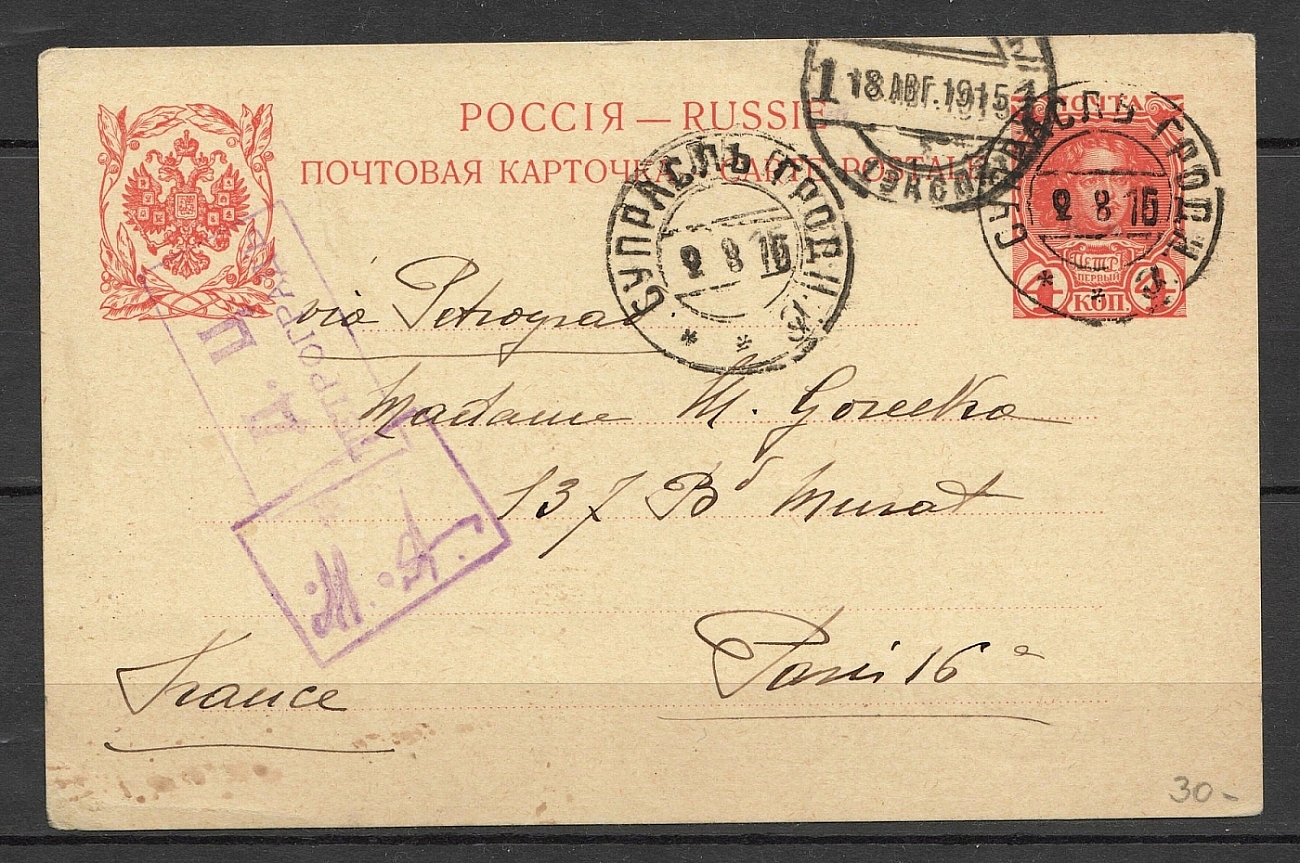 1 18 АВГ.1915 1
РОССІЯ — RUSSIE
ПОЧТОВАЯ КАРТОЧКА CARTE POSTALE
ПОЧТА
ПЕТРЪ
ПЕРВЫЙ
4 КОП. 4
СУПРАСЛЬ ГРОДН. Г.
2 8 15
СУПРАСЛЬ ГРОДН. Г.
2 8 15
via Petrograd
Д. Ц.
ПЕТРОГРАД
Madame M. Gorecka
137 Bd Murat
М. А.
Paris 16e
France
30-